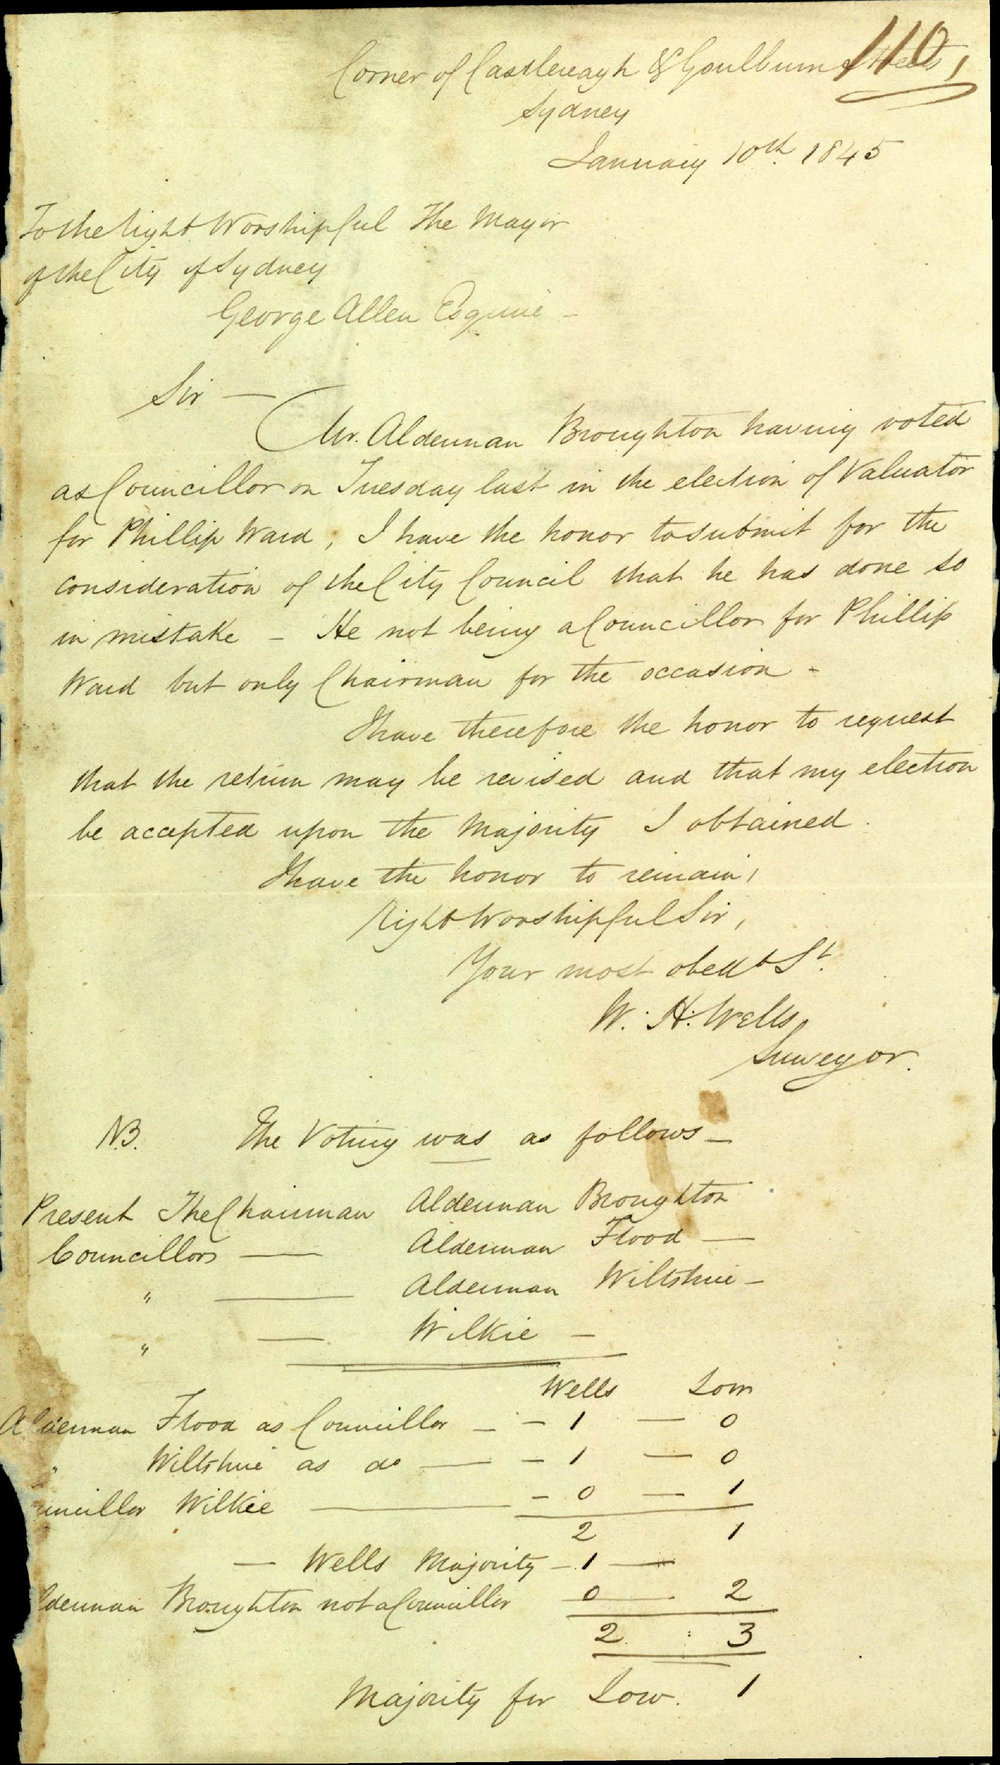 110,
Corner of Castlereagh & Goulburn Streets
Sydney
January 10th 1845
To the Right Worshipful The Mayor
of the City of Sydney
George Allen Esquire -
Sir —
Mr. Alderman Broughton having voted
as Councillor on Tuesday last in the election of Valuator
for Phillip Ward, I have the honor to submit for the
consideration of the City Council that he has done so
in mistake - He not being a Councillor for Phillip
Ward but only Chairman for the occasion -
I have therefore the honor to request
that the return may be revised and that my election
be accepted upon the Majority I obtained.
I have the honor to remain,
Right Worshipful Sir,
Your most obedt St.
W. H. Wells
Surveyor.
NB. The Voting was as follows —
Present The Chairman Alderman Broughton
Councillors — Alderman Flood —
" — Alderman Wiltshire -
" — Wilkie -
Wells Low
Alderman Flood as Councillor - - 1 — 0
" Wiltshire as do — - 1 — 0
uncillor Wilkie — - 0 — 1
2 1
— Wells Majority - 1 —
lderman Broughton not a Councillor 0 — 2
2 : 3
Majority for Low. 1